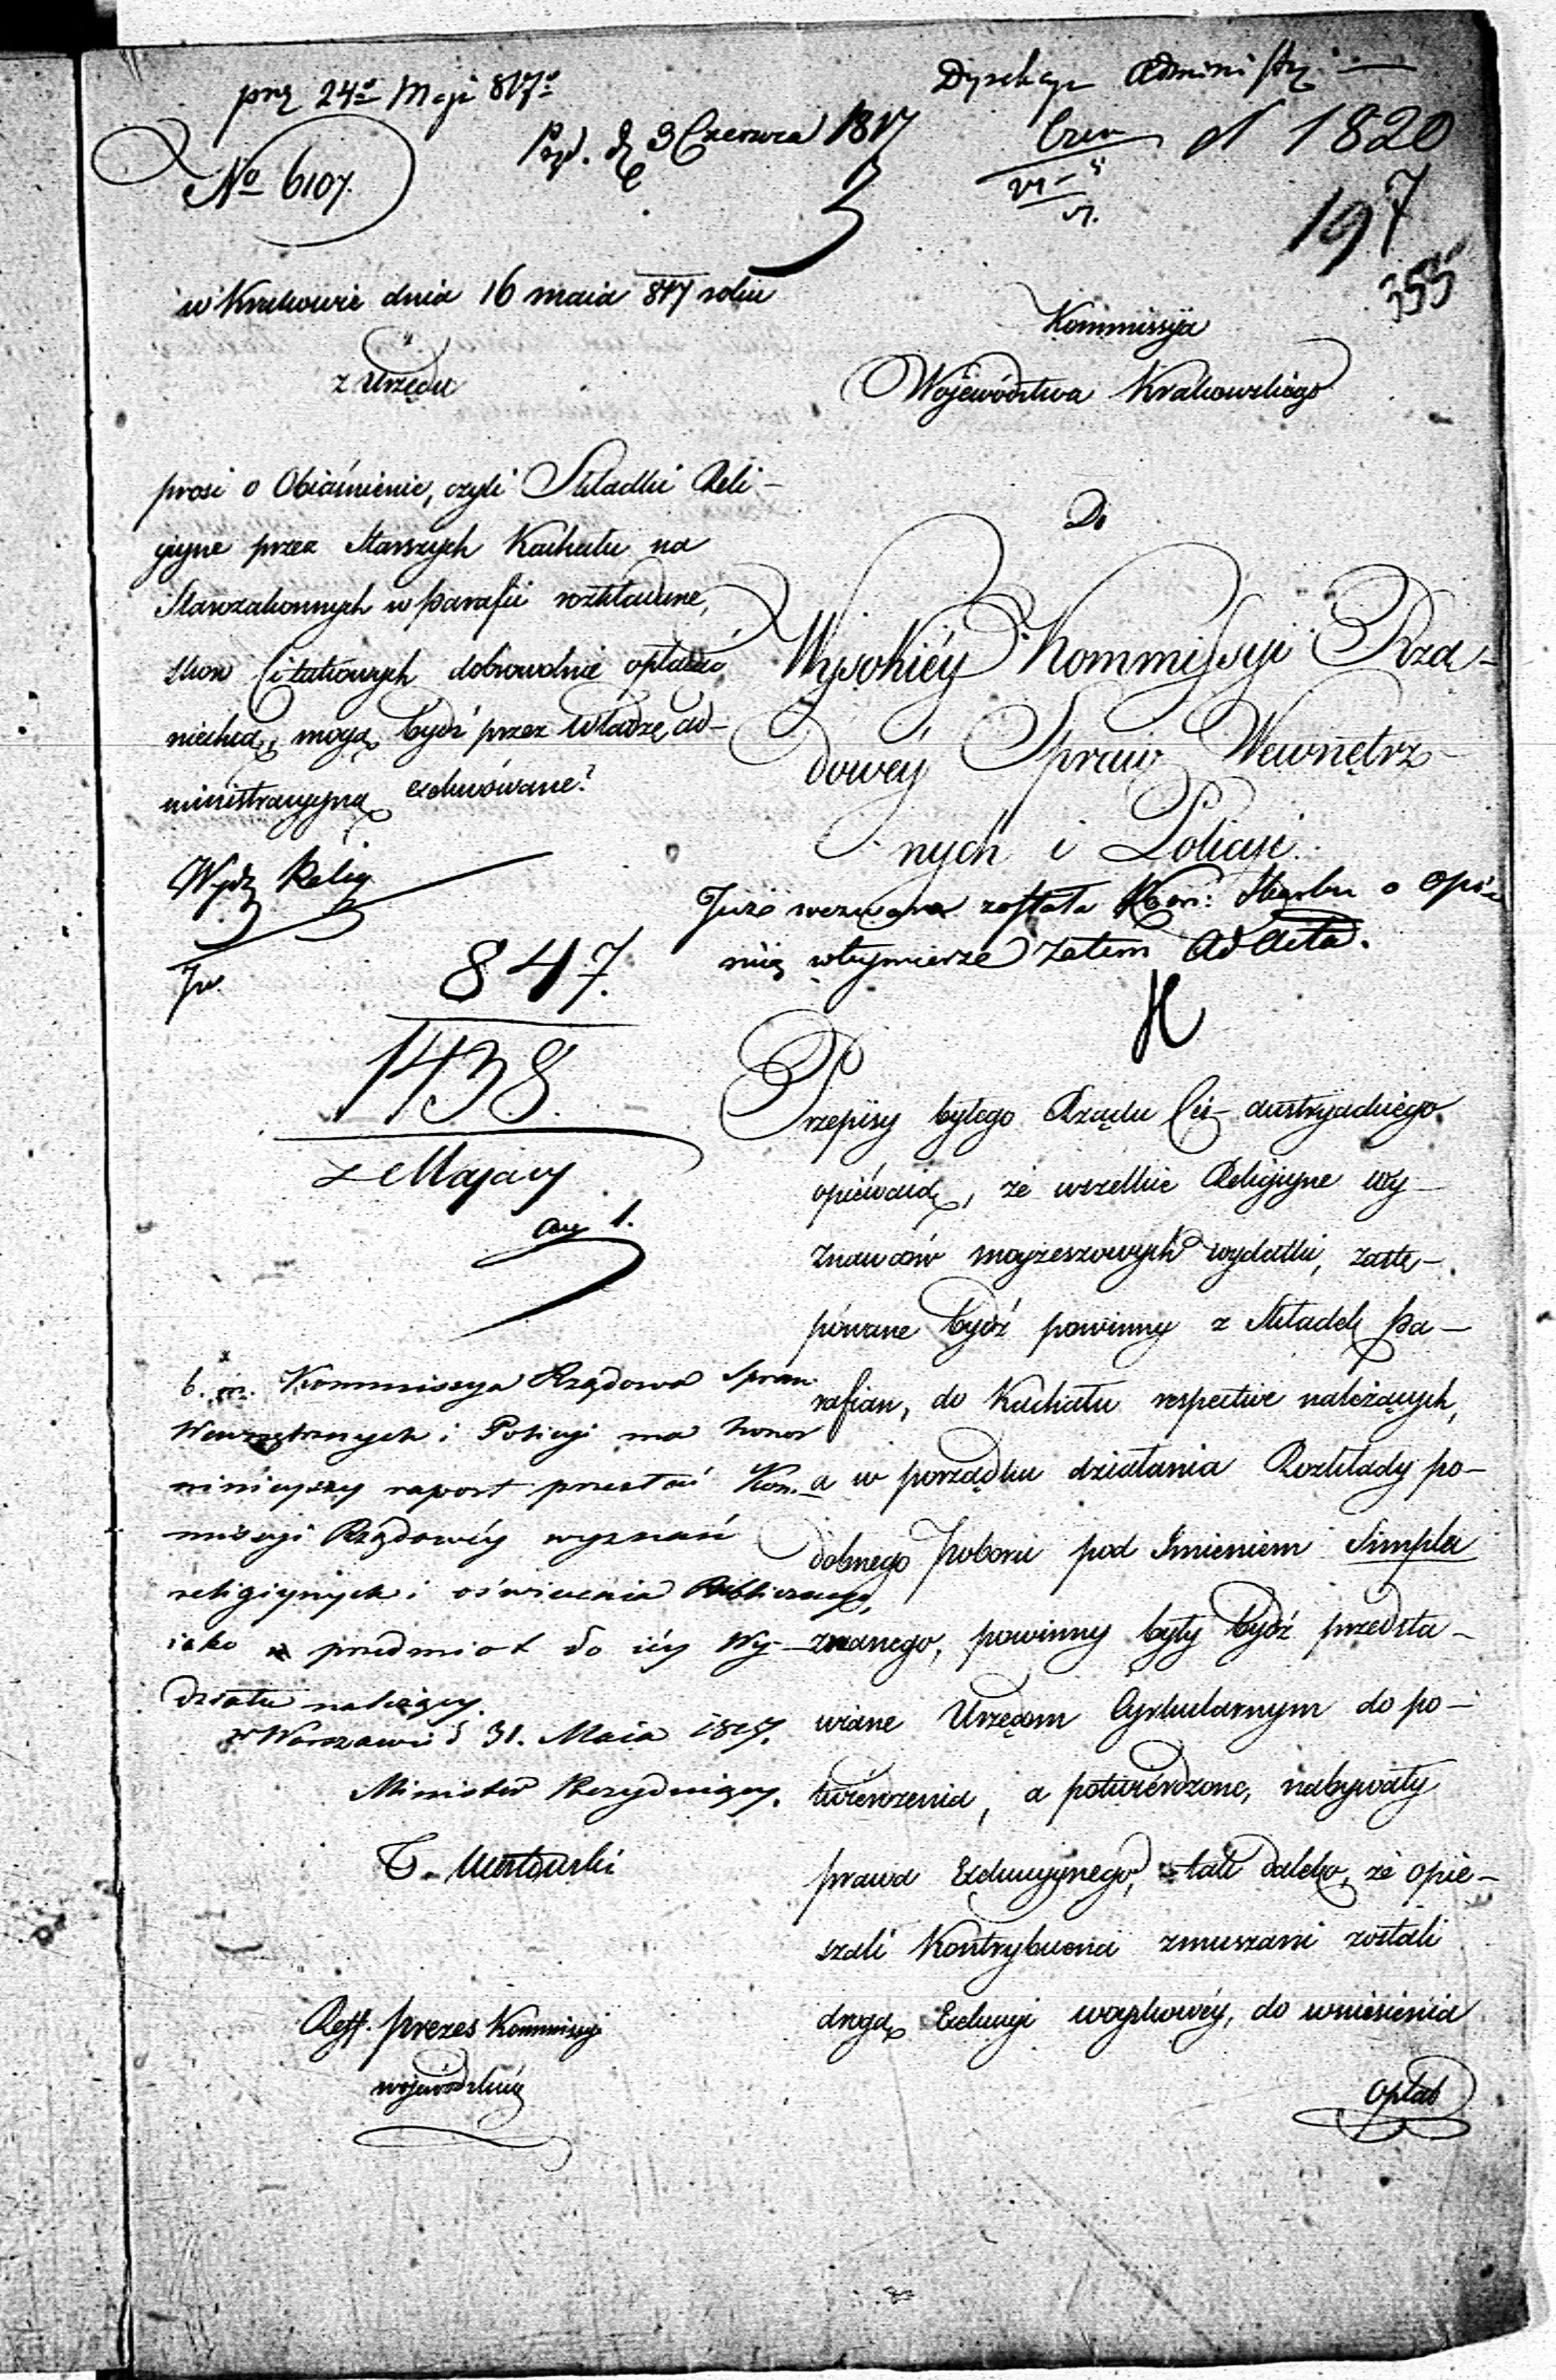 prz 24º Maja 817º
Dyrekcya Administ:
Czer d 1820
No 6107.
3 Czerwca 1817
197
355
w Krakowie dnia 16 maia 817 roku
z Urzędu
Kommissyia
Województwa Krakowskiego
prosi o Obiaśnienie, czyli Składki Reli-
giyne przez Starszych Kachału na
Starozakonnych w parafii rozkładane,
skoro Ci takowych dobrowolnie opłacać
niechcą, mogą bydź przez Władzę ad-
ministracyyną exekwowane?
Do
Wysokiéy Kommissyi Rzą-
dowéy Spraw Wewnętrz-
nych i Policyi.
Wydz Relig
Już wezwana została Kom: Skarbu o opi-
nią w tey mierze zatem Ad Acta.
847.
1438.
z Maja
Przepisy byłego Rządu Ces- austryackiego
opiéwaią, że wszelkie Religiyne wy-
znawców mojżeszowych wydatki, zastę-
powane bydź powinny z Składek pa-
rafian, do Kachału respective należących,
a w porządku działania Rozkłady po-
dobnego Poboru pod Imieniem Simpla
znanego, powinny były bydź przedsta-
wiane Urzędom Cyrkularnym do po-
twierdzenia, a potwierdzone, nabywały
prawa Exekucyynego, tak daleko, że opie-
szali Kontrybuenci zmuszani zostali
drogą Exekucyi woyskowéy, do wniesienia
opłat
Kommissya Rządowa Spraw
Wewnętrznych i Policyi ma honor
ninieyszy raport przesłać Kom-
missyi Rządowéy wyznań
religiynych i oświecenia Publicznego,
iako przedmiot do iéy Wy-
działu należący.
w Warszawie d 31. Maia 1817.
Minister Prezyduiący.
T. Mostowski
Reff. prezes Kommissyi
wojewódzkiéy